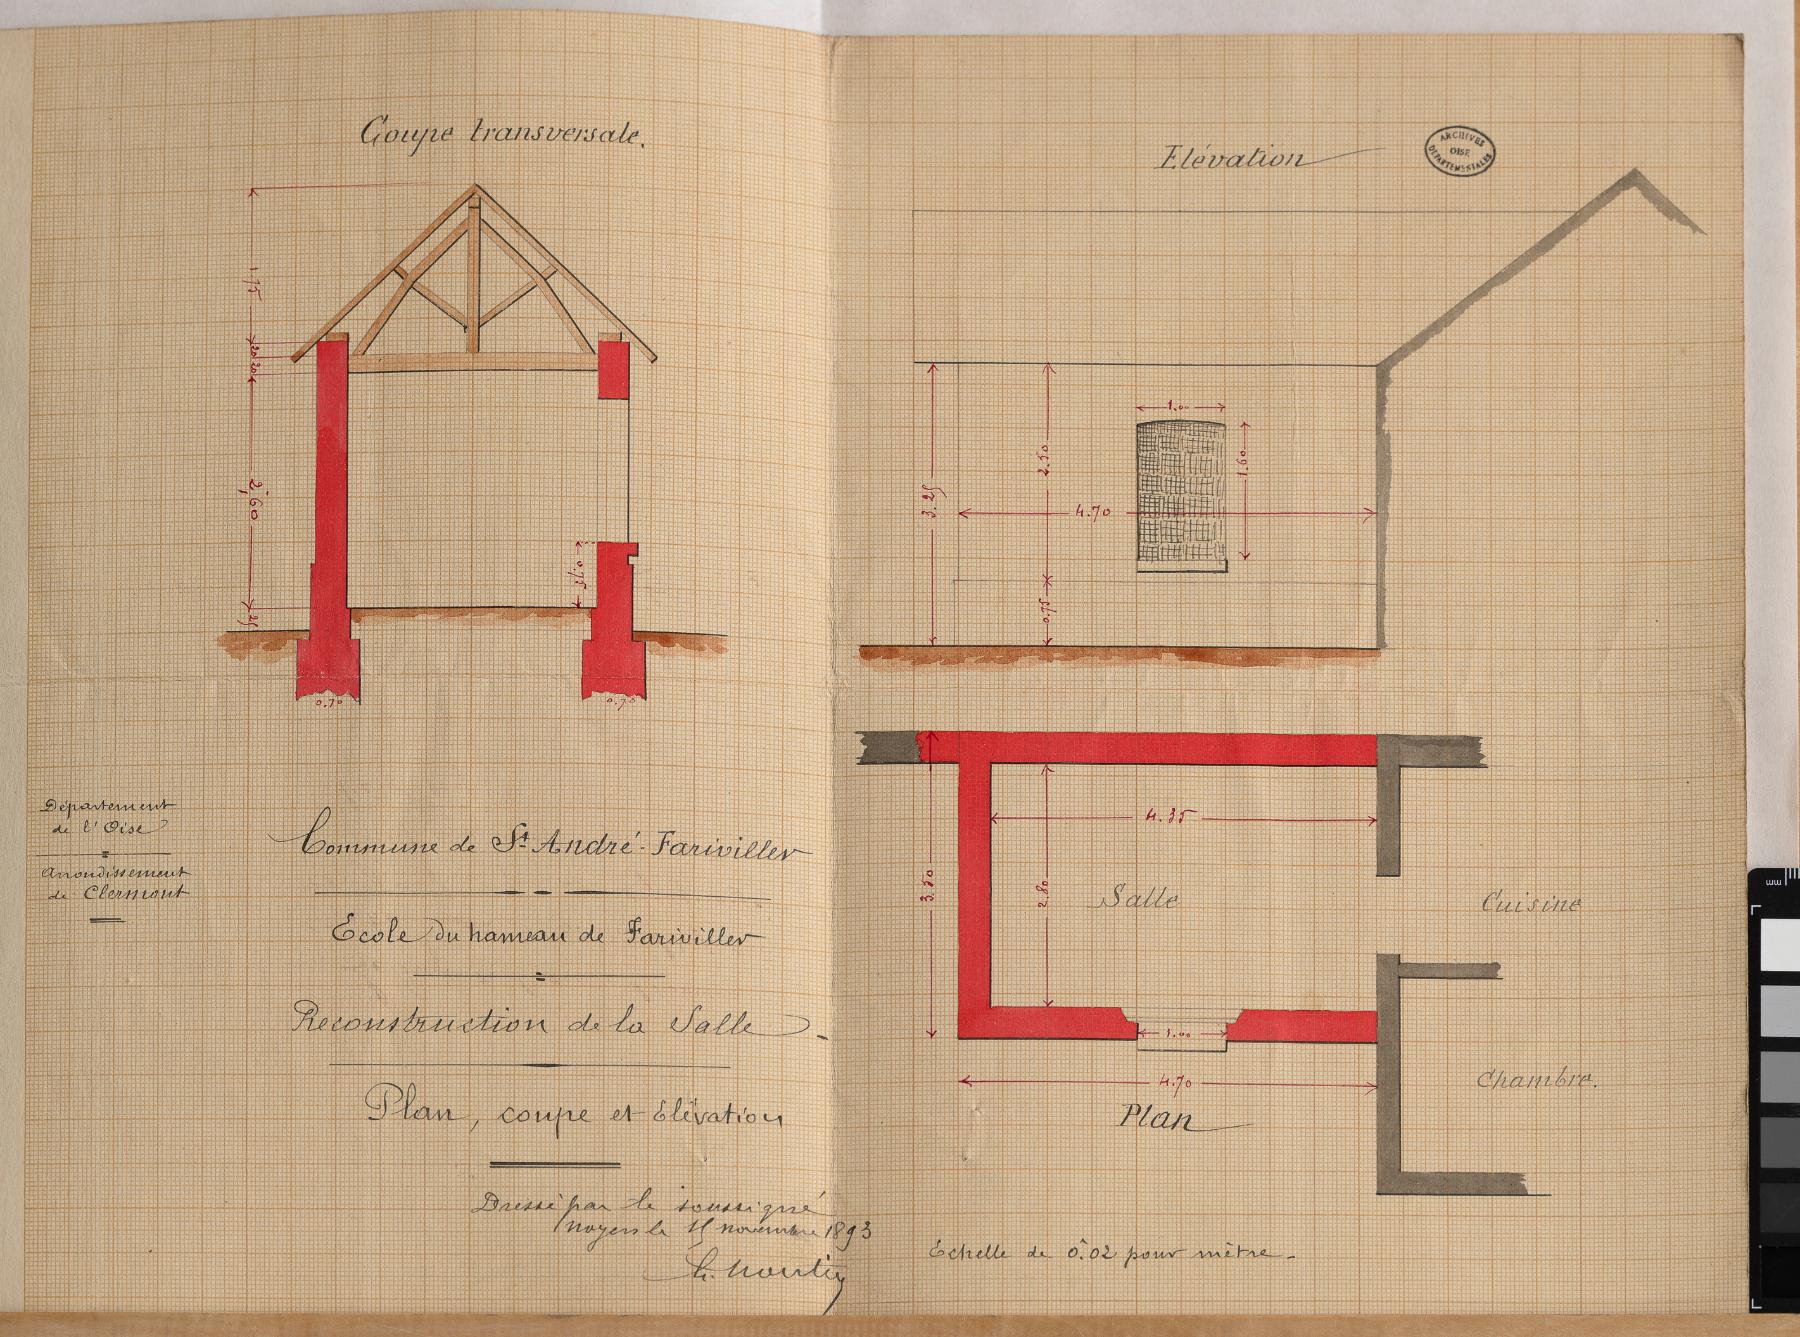 Coupe transversale.
1,75
20
20
2,60
25
0.75
0.70
0.70
Département
de l'Oise
Arrondissement
de Clermont
Commune de St André-Fariviller
Ecole du hameau de Fariviller
Reconstruction de la Salle
Plan, coupe et Elévation
Dressé par le soussigné
Noyers le 15 novembre 1893
Elévation
ARCHIVES
OISE
DÉPARTEMENTALES
1.00
1.60
2.50
3.25
4.70
0.75
4.35
3.50
2.80
Salle
Cuisine
1.00
4.70
Chambre.
Plan
Echelle de 0.m02 pour mètre.